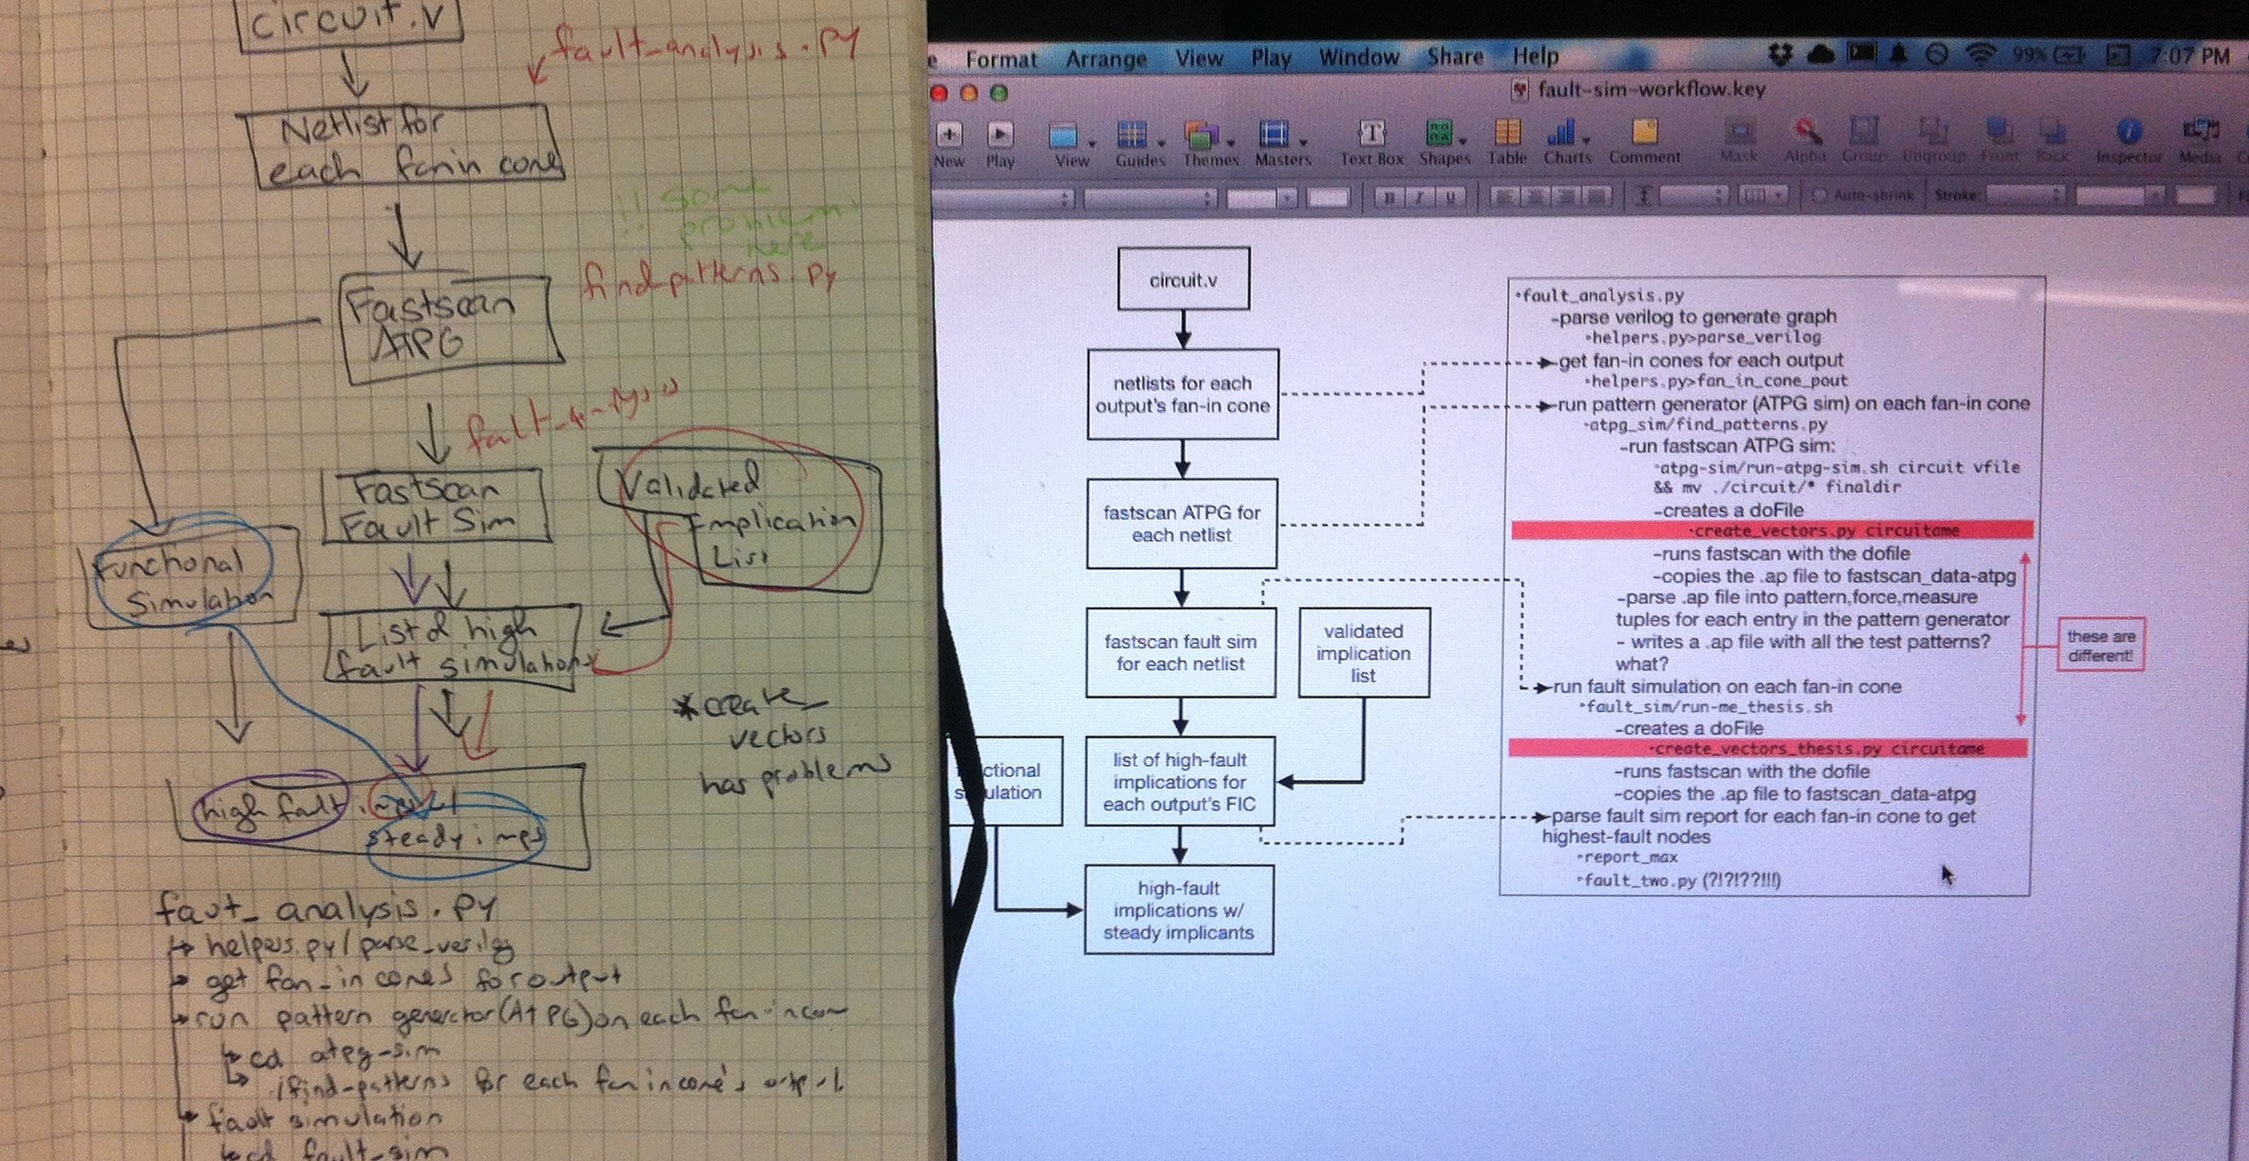 circuit.v
fault_analysis.py
Netlist for
each fanin cone
!! some
problems
here
find-patterns.py
Fastscan
ATPG
Fastscan
Fault Sim
Validated
Implication
List
Functional
Simulation
List of high
fault simulation
*create_
vectors
has problems
high fault
steady imps
fault_analysis.py
helpers.py/parse_verilog
get fan_in cones for output
run pattern generator (ATPG) on each fan-in cone
cd atpg-sim
./find-patterns for each fan in cone's output
fault simulation
cd fault-sim
Format Arrange View Play Window Share Help
99% 7:07 PM
fault-sim-workflow.key
New Play View Guides Themes Masters Text Box Shapes Table Charts Comment Mask Alpha Group Ungroup Front Back Inspector Media
B I U
Auto-shrink Stroke:
circuit.v
netlists for each
output's fan-in cone
fastscan ATPG for
each netlist
fastscan fault sim
for each netlist
validated
implication
list
ctional
ulation
list of high-fault
implications for
each output's FIC
high-fault
implications w/
steady implicants
•fault_analysis.py
-parse verilog to generate graph
•helpers.py>parse_verilog
get fan-in cones for each output
•helpers.py>fan_in_cone_pout
run pattern generator (ATPG sim) on each fan-in cone
•atpg_sim/find_patterns.py
-run fastscan ATPG sim:
•atpg-sim/run-atpg-sim.sh circuit vfile
&& mv ./circuit/* finaldir
-creates a doFile
•create_vectors.py circuitame
-runs fastscan with the dofile
-copies the .ap file to fastscan_data-atpg
-parse .ap file into pattern,force,measure
tuples for each entry in the pattern generator
- writes a .ap file with all the test patterns?
what?
run fault simulation on each fan-in cone
•fault_sim/run-me_thesis.sh
-creates a doFile
•create_vectors_thesis.py circuitame
-runs fastscan with the dofile
-copies the .ap file to fastscan_data-atpg
parse fault sim report for each fan-in cone to get
highest-fault nodes
•report_max
•fault_two.py (?!?!??!!!)
these are
different!